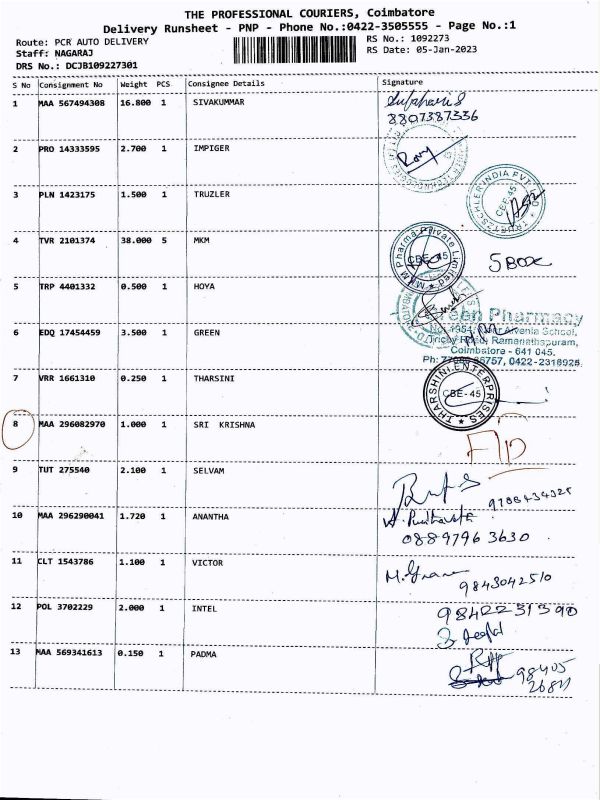 THE PROFESSIONAL COURIERS, Coimbatore
Delivery Runsheet - PNP - Phone No.:0422-3505555 - Page No.:1
Route: PCR AUTO DELIVERY
Staff: NAGARAJ
DRS No.: DCJB109227301
RS No.: 1092273
RS Date: 05-Jan-2023
S No Consignment No Weight PCS Consignee Details Signature
1 MAA 567494308 16.800 1 SIVAKUMMAR
8807387336
2 PRO 14333595 2.700 1 IMPIGER
3 PLN 1423175 1.500 1 TRUZLER
INDIA PVT CBE-45
4 TVR 2101374 38.000 5 MKM
MKM Pharma Private Limited CBE-45
5 BOX
5 TRP 4401332 0.500 1 HOYA
6 EDQ 17454459 3.500 1 GREEN
Green Pharmacy
Alvernia School,
Trichy Road, Ramanathapuram,
Coimbatore - 641 045.
Ph: 0422-2316925
7 VRR 1661310 0.250 1 THARSINI
THARSHINI ENTERPRISES CBE-45
8 MAA 296082970 1.000 1 SRI KRISHNA
9 TUT 275540 2.100 1 SELVAM
10 MAA 296290041 1.720 1 ANANTHA
0889796 3630
11 CLT 1543786 1.100 1 VICTOR
9843042510
12 POL 3702229 2.000 1 INTEL
13 MAA 569341613 0.150 1 PADMA
98405